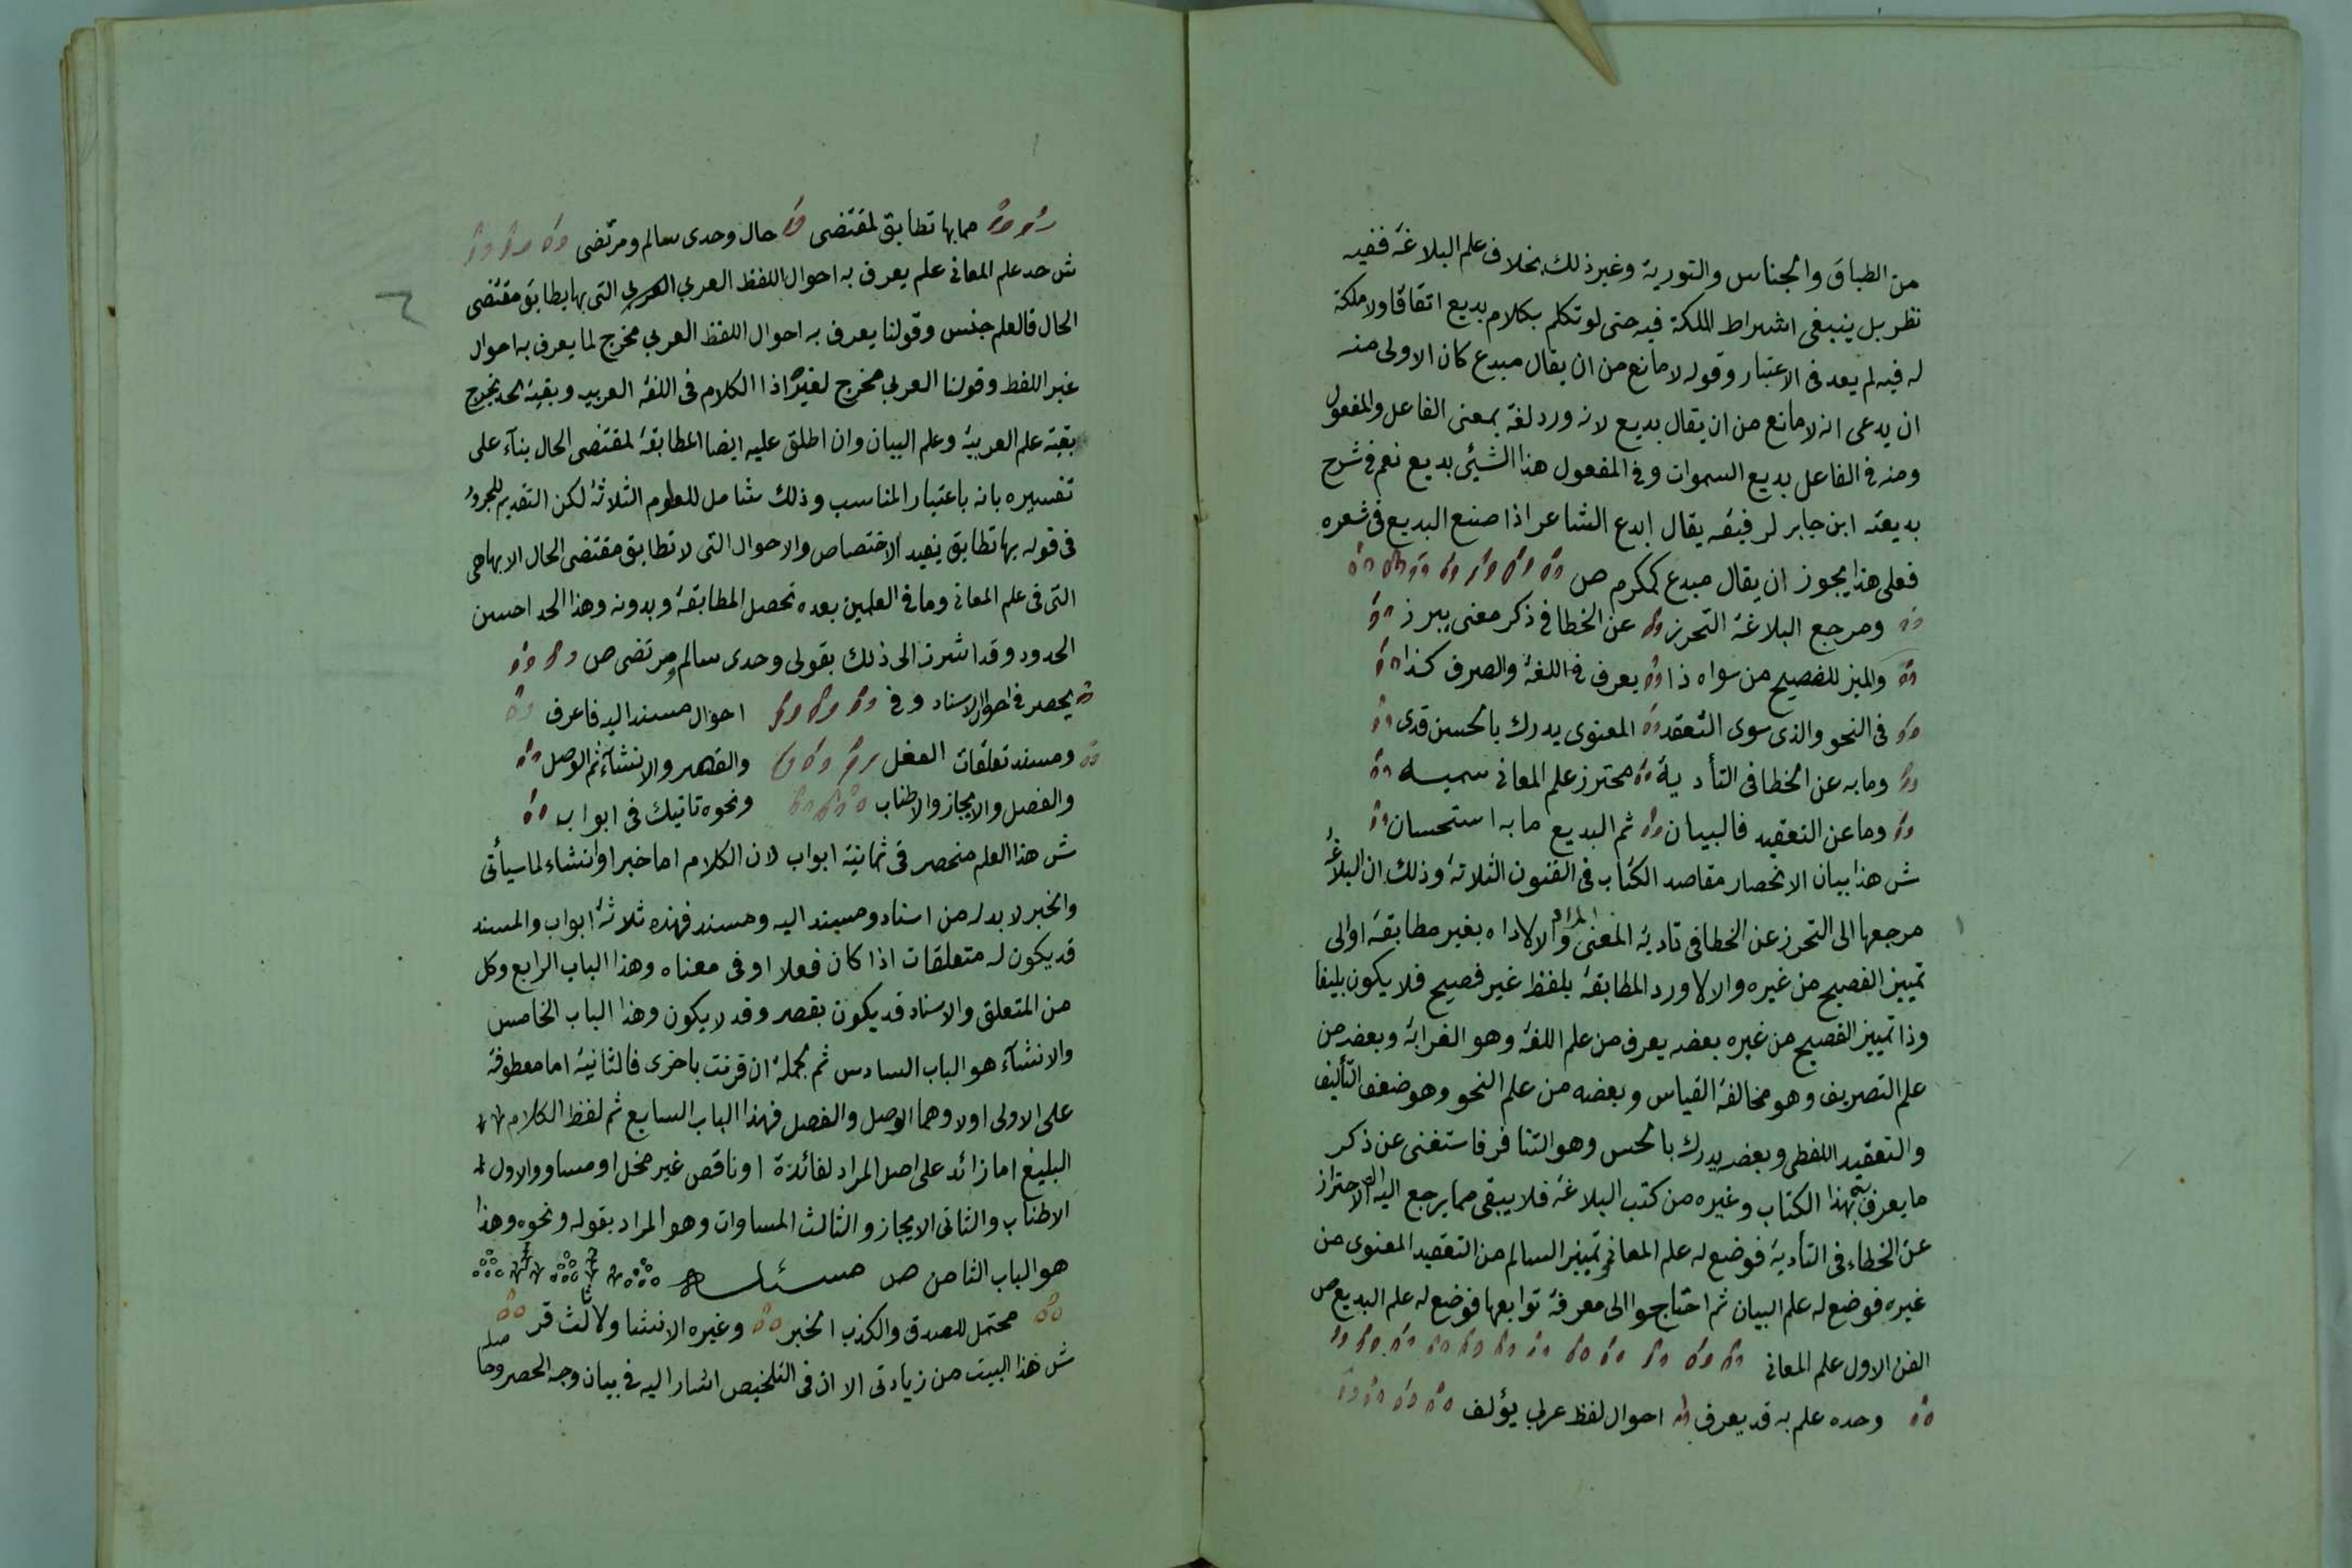 من الطباق والجناس والتورية وغير ذلك بخلاف علم البلاغة ففيه
نظر بل ينبغى اشتراط الملكة فيه حتى لو تكلم بكلام بديع اتفاقا ولا ملكة
له فيه لم يعد فى الاعتبار وقوله لا مانع من ان يقال مبدع كان الاولى منه
ان يدعى انه لا مانع من ان يقال بديع لانه ورد لغة بمعنى الفاعل والمفعول
ومنه فى الفاعل بديع السموات وفى المفعول هذا الشيئ بديع نعم فى شرح
بديعته ابن جابر لرفيقه يقال ابدع الشاعر اذا صنع البديع فى شعره
فعلى هذا يجوز ان يقال مبدع كمكرم ص
ومرجع البلاغة التحرز عن الخطا فى ذكر معنى يبرز
والميز للفصيح من سواه ذا يعرف فى اللغة والصرف كذا
فى النحو والذى سوى التعقد المعنوى يدرك بالحسن قدى
وما به عن الخطا فى التأدية محترز علم المعانى سميه
وما عن التعقيد فالبيان ثم البديع ما به استحسان
ش هذا بيان الانحصار مقاصد الكتاب فى الفنون الثلاثة وذلك ان البلاغة
مرجعها الى التحرز عن الخطا فى تادية المعنى المراد والا لاداه بغير مطابقة اوالى
تمييز الفصيح من غيره والا لاورد المطابقة بلفظ غير فصيح فلا يكون بليغا
وذا تمييز الفصيح من غيره بعضه يعرف من علم اللغة وهو الغرابة وبعضه من
علم التصريف وهو مخالفة القياس وبعضه من علم النحو وهو ضعف التأليف
والتعقيد اللفظى وبعضه يدرك بالحس وهو التنافر فاستغنى عن ذكر
ما يعرف بهذا الكتاب وغيره من كتب البلاغة فلا يبقى مما يرجع اليه الا الاحتراز
عن الخطاء فى التأدية فوضع له علم المعانى وتمييز السالم من التعقيد المعنوى من
غيره فوضع له علم البيان ثم احتاجوا الى معرفة توابعها فوضع له علم البديع ص
الفن الاول علم المعانى
وحده علم به قد يعرف احوال لفظ عربى يؤلف
مما بها تطابق لمقتضى حال وحدى سالم ومرتضى
ش حد علم المعانى علم يعرف به احوال اللفظ العربي التى بها يطابق مقتضى
الحال فالعلم جنس وقولنا يعرف به احوال اللفظ العربي مخرج لما يعرف به احوال
غير اللفظ وقولنا العربي مخرج لغيره اذا الكلام فى اللغة العربيه وبقية الحد يخرج
بقية علم العربية وعلم البيان وان اطلق عليه ايضا المطابقة لمقتضى الحال بنآء على
تفسيره بانه باعتبار المناسب وذلك شامل للعلوم الثلاثة لكن التقديم للمجرور
فى قوله بها تطابق يفيد الاختصاص والاحوال التى لا تطابق مقتضى الحال الا بها هى
التى فى علم المعانى وما فى العلمين بعده تحصل المطابقة وبدونه وهذا الحد احسن
الحدود وقد اشرت الى ذلك بقولى وحدى سالم ومرتضى ص
يحصر فى احوال الاسناد وفى احوال مسند اليه فاعرف
ومسند تعلقات الفعل والقصر والانشآء ثم الوصل
والفصل والايجاز والاطناب ونحوه تاتيك فى ابواب
ش هذا العلم منحصر فى ثمانية ابواب لان الكلام اما خبر او انشاء لما سيأتى
والخبر لا بد له من اسناد ومسند اليه ومسند فهذه ثلاثة ابواب والمسند
قد يكون له متعلقات اذا كان فعلا او فى معناه وهذا الباب الرابع وكل
من المتعلق والاسناد قد يكون بقصر وقد لا يكون وهذا الباب الخامس
والانشآء هو الباب السادس ثم الجملة ان قرنت باخرى فالثانية اما معطوفة
على الاولى اولا وهما الوصل والفصل فهذا الباب السابع ثم لفظ الكلام
البليغ اما زائد على اصل المراد لفائدة او ناقص غير مخل او مساو والاول
الاطناب والثانى الايجاز والثالث المساوات وهو المراد بقوله ونحوه وهذا
هو الباب الثامن ص مسئله
محتمل للصدق والكذب الخبر وغيره الانشا ولا ثالث قر
ش هذا البيت من زيادتى الا ان فى التلخيص اشار اليه فى بيان وجه الحصر وحاصله